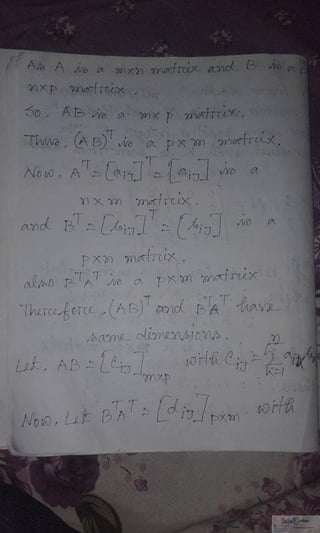 As A is a mxn matrix and B is a
nxp matrix.
So, AB is a mxp matrix.
Thus, (AB)ᵀ is a pxm matrix.
Now, Aᵀ = [aij]ᵀ = [aij] is a
nxm matrix.
and Bᵀ = [bij]ᵀ = [bij] is a
pxn matrix.
also BᵀAᵀ is a pxm matrix
Therefore, (AB)ᵀ and BᵀAᵀ have
same dimensions.
Let, AB = [Cij]mxp with Cij = Σₖ₌₁ⁿ aik
Now, Let BᵀAᵀ = [dij]pxm with